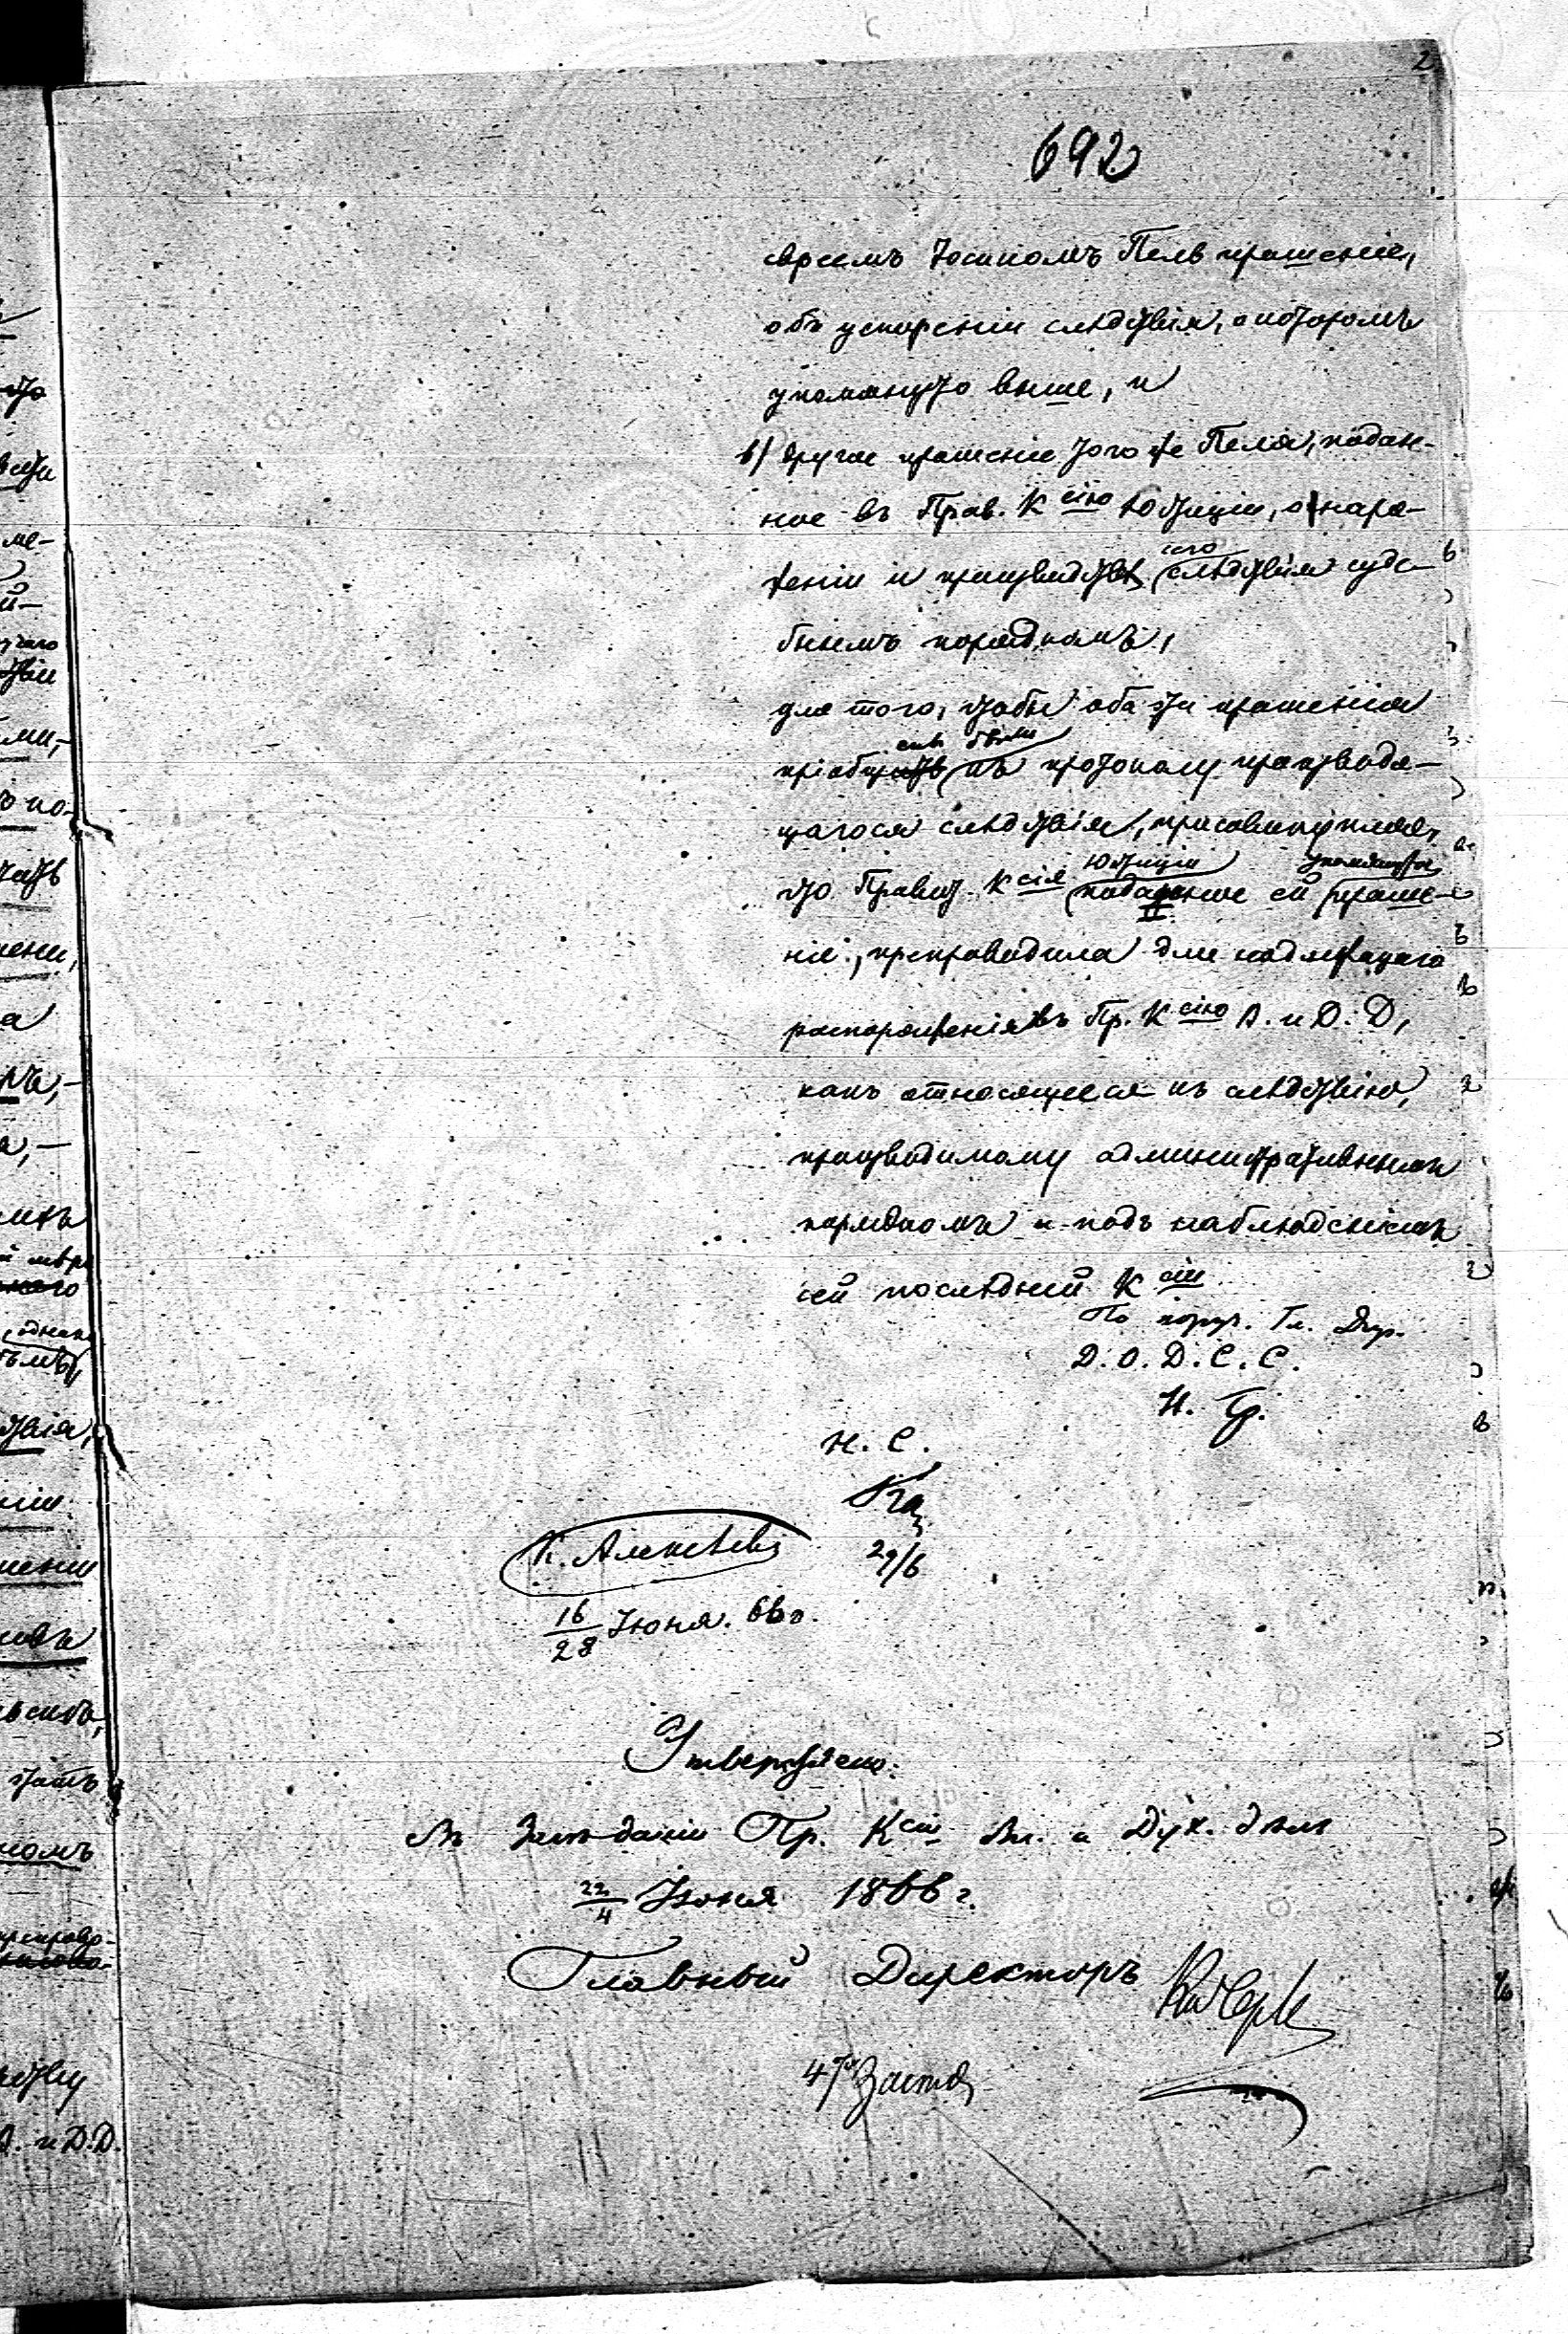 692
евреемъ Іосикомъ Пель прошеніе,
объ ускореніи слѣдствія, о которомъ
упомянуто выше, и
в) другое прошеніе того же Пеля, подан-
ное въ Прав. К сію Юстиціи, о наря-
женіи и производствѣ сего слѣдствія суде-
бнымъ порядкомъ,
для того, чтобы оба эти прошенія
пріобщены были къ протоколу производя-
щагося слѣдствія, присовокупляя,
что Правит. К сія Юстиціи поданное ей упомянутое проше-
ніе, препроводила для надлежащаго
распоряженія въ Пр. К сію В. и Д. Д,
какъ относящееся къ слѣдствію,
производимому административнымъ
порядкомъ и подъ наблюденіемъ
сей послѣдней К сіи
По поруч. Гл. Дир.
Д. О. Д. С. С.
Н. С.
29/6
К. Алексѣевъ
16/28 Іюня. 66 г.
Утверждено.
Въ Засѣданіи Пр. К сіи Вн. и Дух. дѣлъ
22/4 Іюня 1866 г.
Главный Директоръ